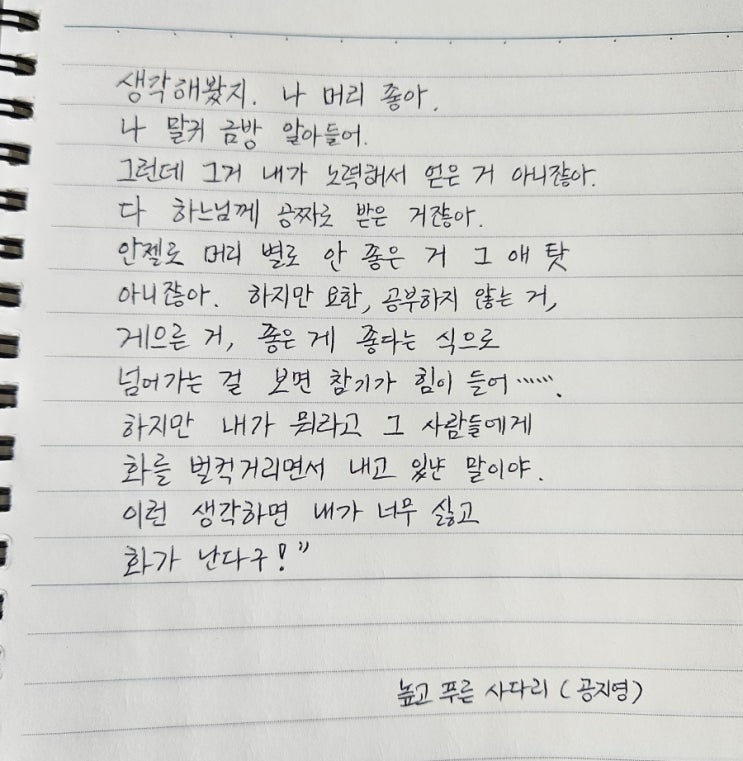 생각해봤지. 나 머리 좋아.
나 말귀 금방 알아들어.
그런데 그거 내가 노력해서 얻은 거 아니잖아.
다 하느님께 공짜로 받은 거잖아.
안젤로 머리 별로 안 좋은 거 그 애 탓
아니잖아. 하지만 요한, 공부하지 않는 거,
게으른 거, 좋은 게 좋다는 식으로
넘어가는 걸 보면 참기가 힘이 들어…….
하지만 내가 뭐라고 그 사람들에게
화를 벌컥거리면서 내고 있냔 말이야.
이런 생각하면 내가 너무 싫고
화가 난다구!”
높고 푸른 사다리 (공지영)